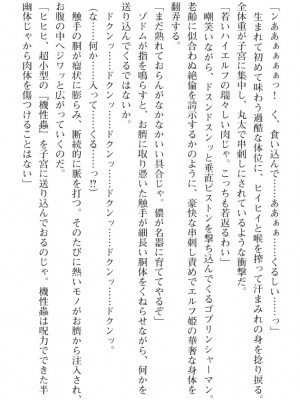 「ンああぁぁぁぁっ！　く、食い込んで……っ……くるしい……っ」
　生まれて初めて味わう過酷な体位に、ヒイヒイと喉を搾って汗まみれの身を捩り戻る。
　全体重が子宮に集中し、丸太で串刺しにされているような衝撃だ。
「若いハイエルフの瑞々しい肉じゃ。こっちも若返るわい」
　嘲笑いながら、ドスンドスンッと垂直ピストンを撃ち込んでくるゴブリンシャーマン。
老齢に似合わぬ絶倫を誇示するかのように、豪快な串刺し責めでエルフ姫の華奢な身体を
翻弄する。
「まだ熟れておらんがなかなかいい具合じゃ。儂が名器に育ててやるぞ」
　ゾドムが指を鳴らすと、お臍に取り憑いた触手が細長い胴体をくねらせながら、何かを
送り込んでくるではないか。
　ドクンッ……ドクンッ……ドクンッ……ドクンッ！
（な……何か……入って……くる……っ!?）
　触手の胴が瘤状に膨らみ、断続的に脈を打つ。そのたびに熱いモノがお臍から注入され、
お腹の中へジワッと広がっていくのだ。
「ヒヒヒ、超小型の『機性蟲』を子宮に送り込んでおるのじゃ。機性蟲は呪力でできた半
幽体じゃから肉体を傷つけることはない」